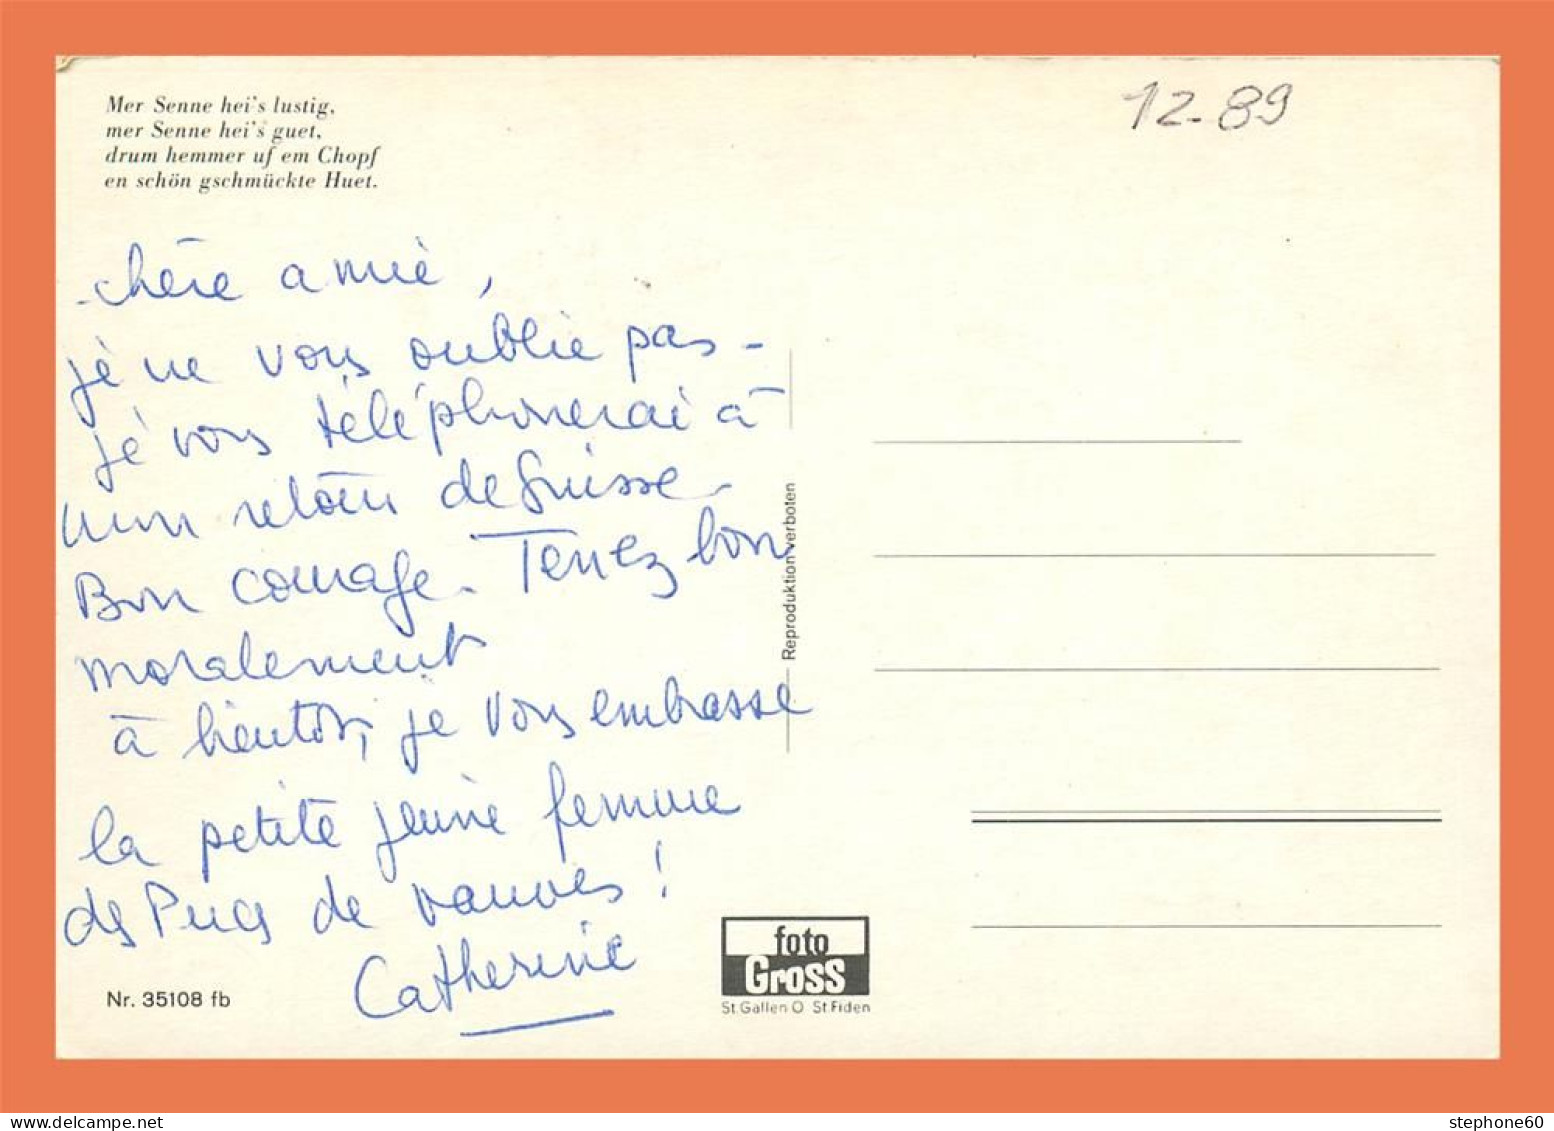 Mer Senne hei's lustig,
mer Senne hei's guet,
drum hemmer uf em Chopf
en schön gschmückte Huet.
12-89
chère amie,
je ne vous oublie pas -
je vous téléphonerai à
mon retour de Suisse.
Bon courage. Tenez bon
moralement
à bientôt, je vous embrasse
la petite jeune femme
des Puces de vanves !
Catherine
Reproduktion verboten
foto
Gross
St.Gallen O St.Fiden
Nr. 35108 fb
www.delcampe.net
stephone60